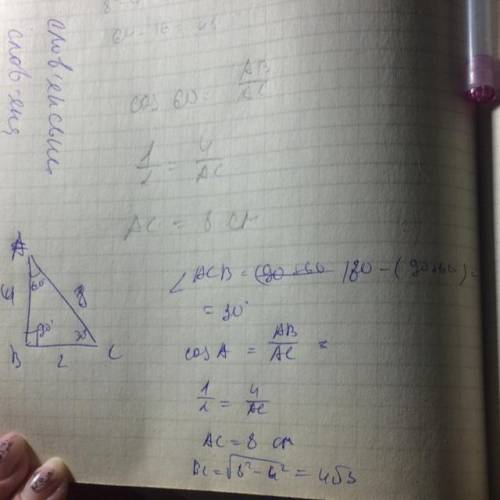 64 - 16 = 48
cos 60 = AB/AC
1/2 = 4/AC
AC = 8 см
A
60
4
8
90°
30
B
C
∠ACB = 180 - (90+60) =
= 30°
cos A = AB/AC =
1/2 = 4/AC
AC = 8 см
BC = √8² - 4² = 4√3